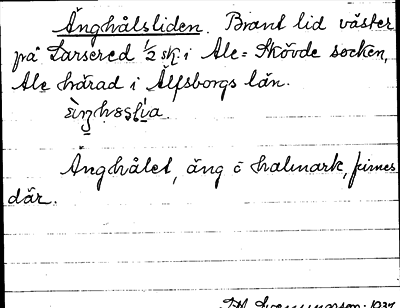 Änghålsliden. Brant lid väster
på Larsered 1/2 sk. i Ale-Skövde socken,
Ale härad i Älfsborgs län.
Änghålet, äng o halmark, finnes
där.